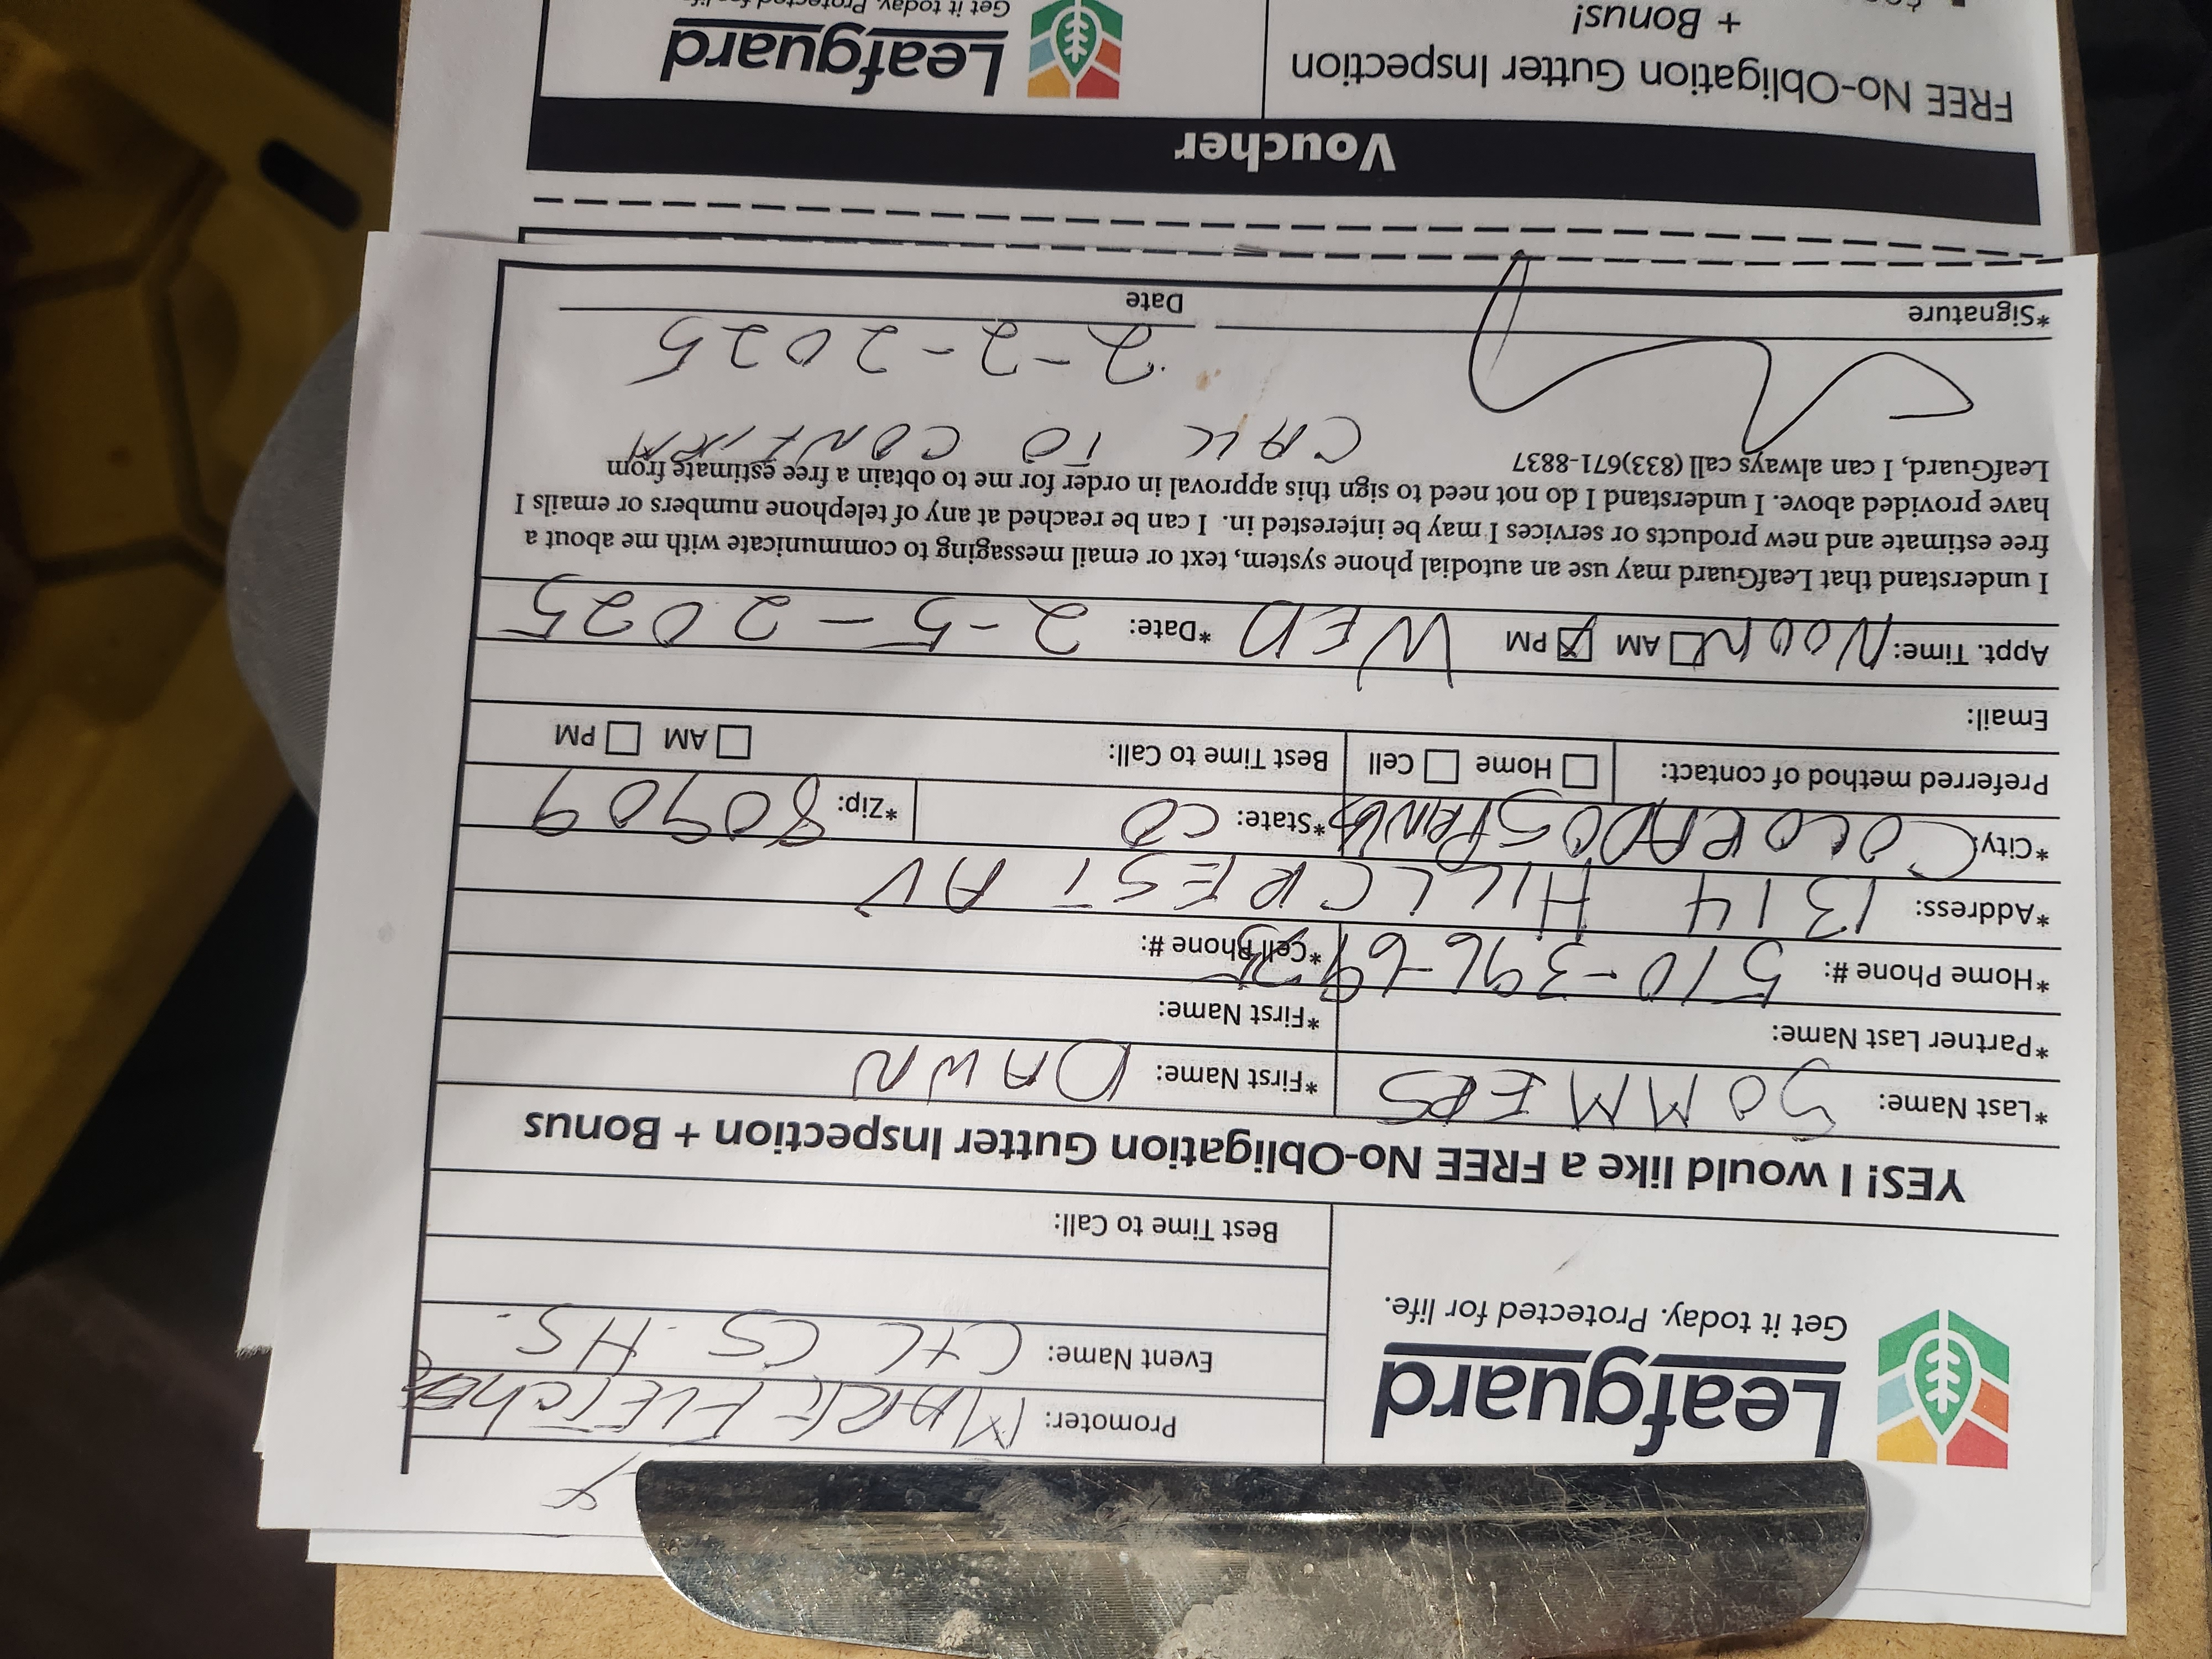 Leafguard
Get it today. Protected for life.
Promoter: MARK FLETCher
Event Name: C+C CS HS.
Best Time to Call:
YES! I would like a FREE No-Obligation Gutter Inspection + Bonus
*Last Name: SOMMERS *First Name: DAWN
*Partner Last Name: *First Name:
*Home Phone #: 570-396-69 *Cell Phone #:
*Address: 1314 HILLCREST AV
*City: COLORADO SPRINGS *State: CO *Zip: 80909
Preferred method of contact: Home Cell Best Time to Call: AM PM
Email:
Appt. Time: NOON AM PM WED *Date: 2-5-2025
I understand that LeafGuard may use an autodial phone system, text or email messaging to communicate with me about a
free estimate and new products or services I may be interested in. I can be reached at any of telephone numbers or emails I
have provided above. I understand I do not need to sign this approval in order for me to obtain a free estimate from
LeafGuard, I can always call (833)671-8837
CALL TO CONFIRM
2-2-2025
*Signature Date
Voucher
FREE No-Obligation Gutter Inspection
+ Bonus!
Leafguard
Get it today. Protected for life.